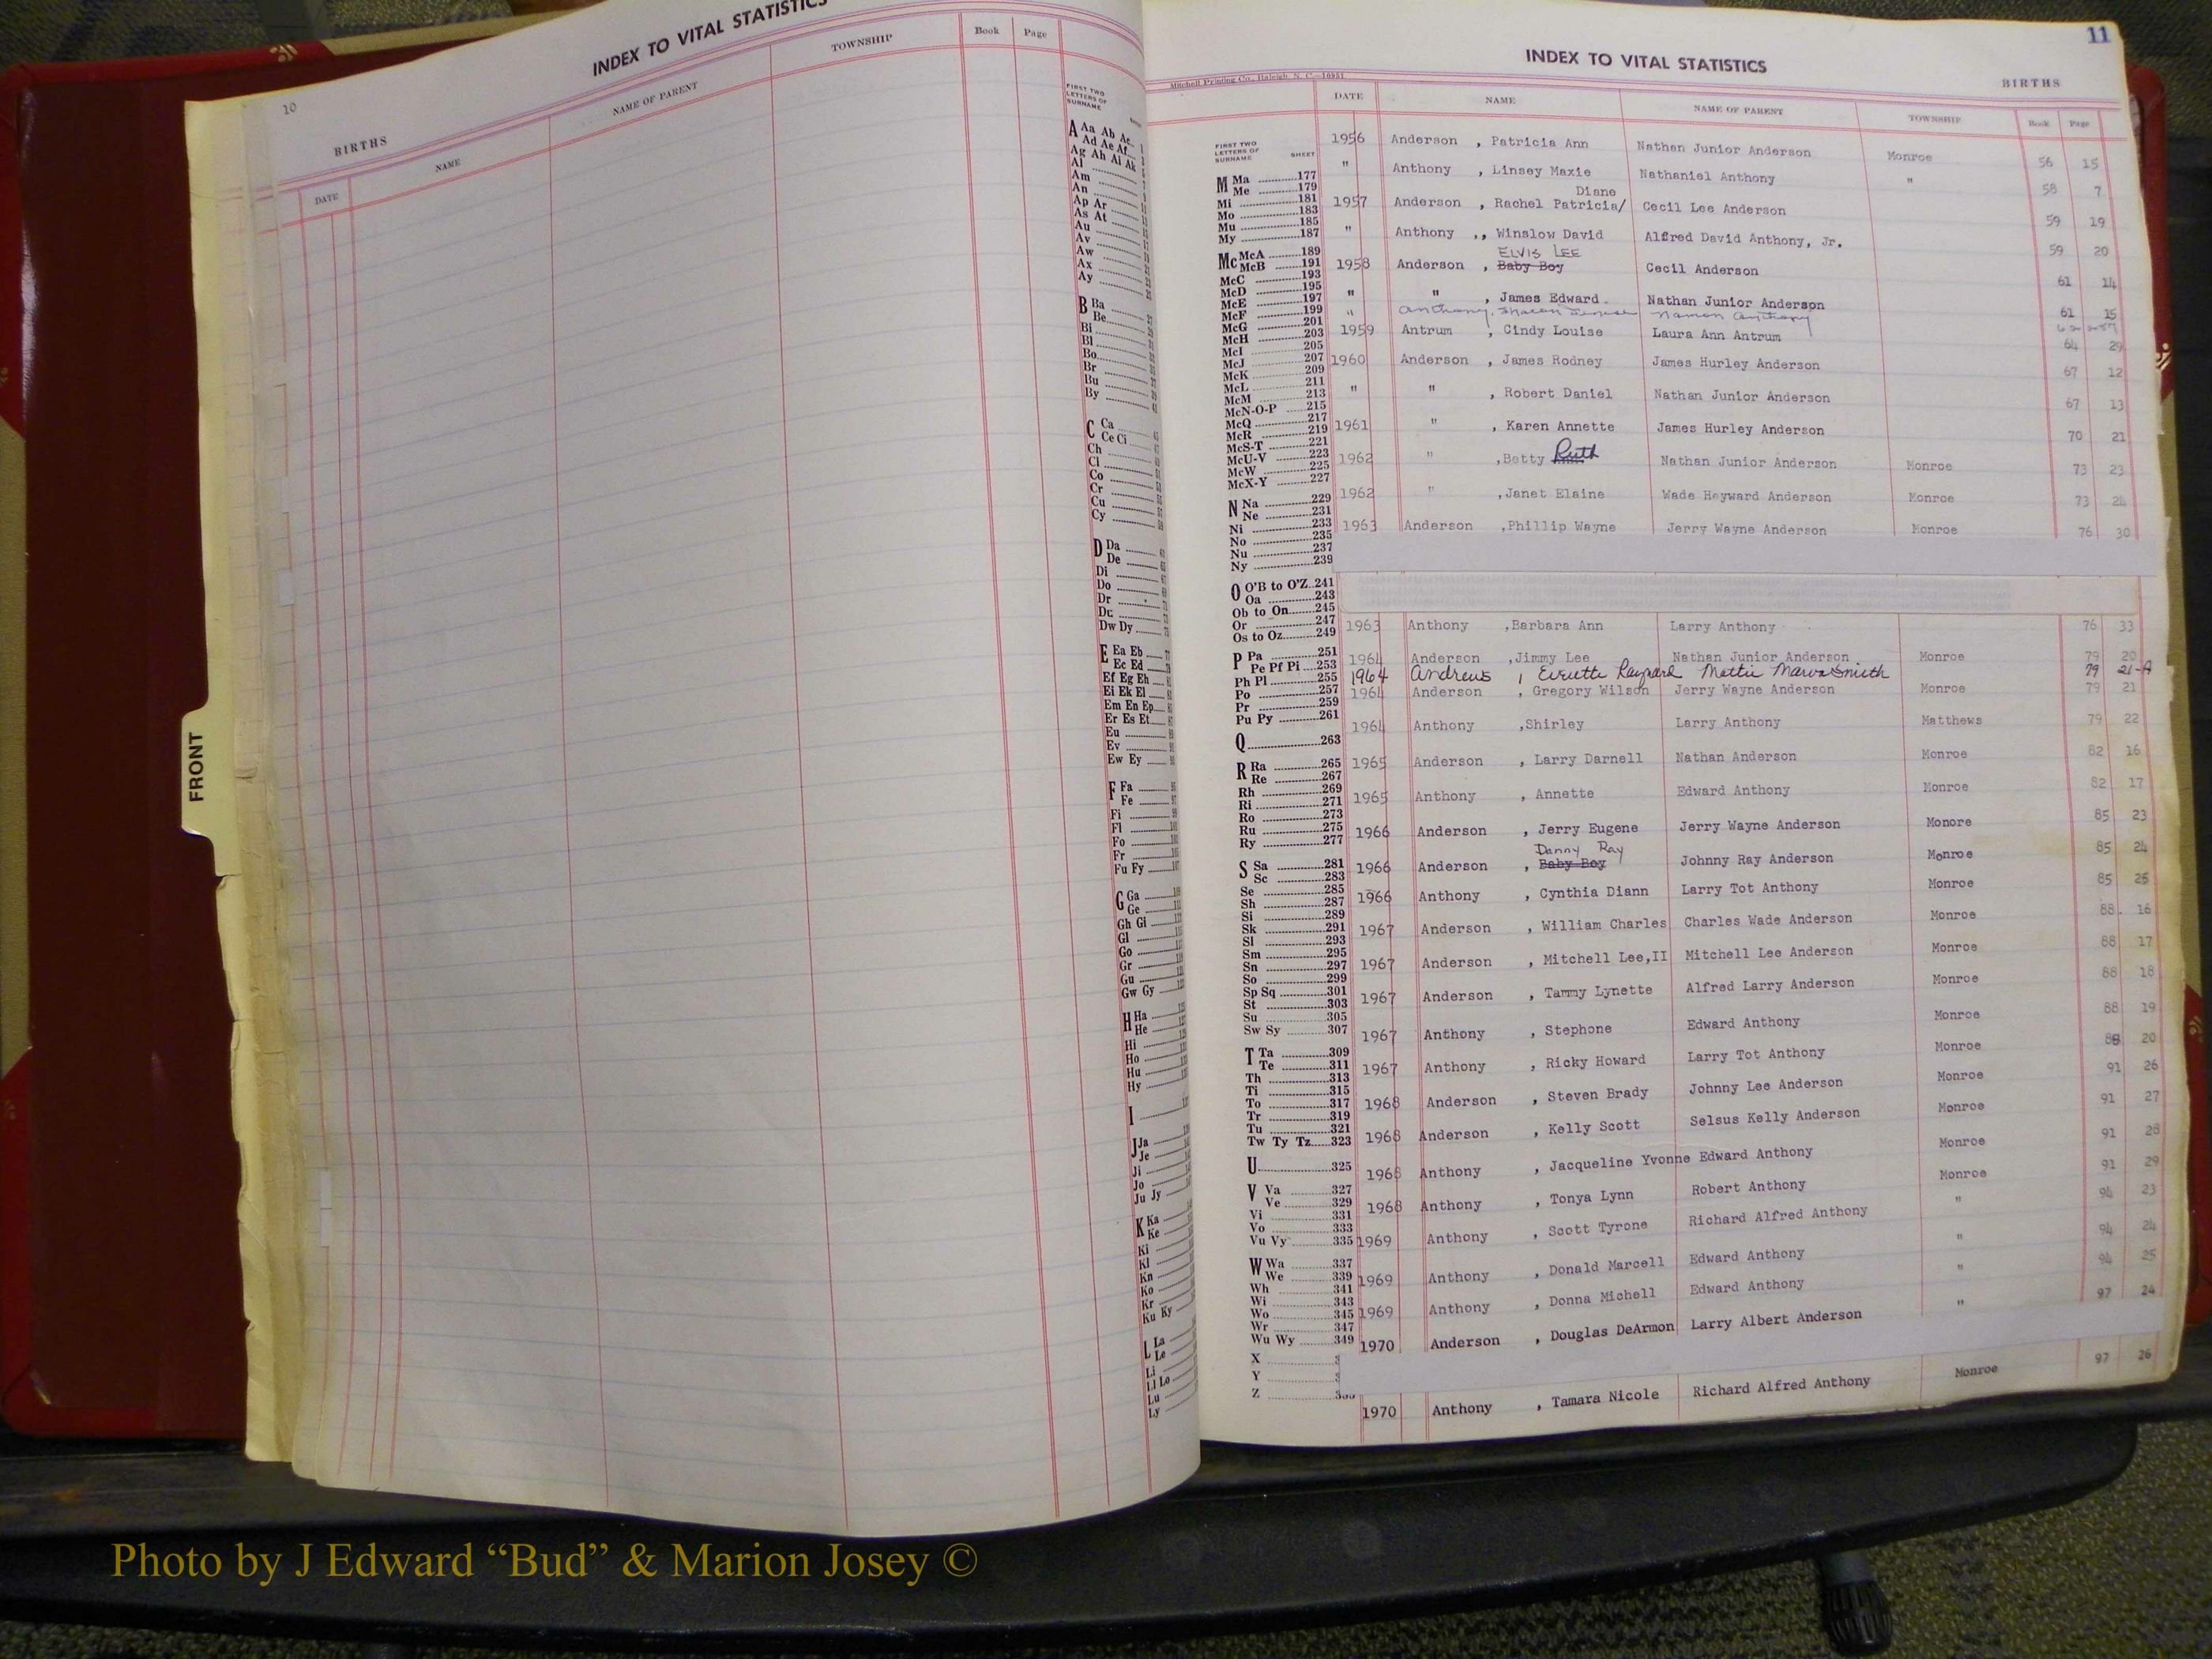 10
INDEX TO VITAL STATISTICS
BIRTHS
DATE NAME NAME OF PARENT TOWNSHIP Book Page
FIRST TWO
LETTERS OF
SURNAME
A Aa Ab Ac
Ad Ae Af
Ag Ah Ai Ak
Al
Am
An
Ap Ar
As At
Au
Av
Aw
Ax
Ay
B Ba
Be
Bi
Bl
Bo
Br
Bu
By
C Ca
Ce Ci
Ch
Cl
Co
Cr
Cu
Cy
D Da
De
Di
Do
Dr
Du
Dw Dy
E Ea Eb
Ec Ed
Ef Eg Eh
Ei Ek El
Em En Ep
Er Es Et
Eu
Ev
Ew Ey
F Fa
Fe
Fi
Fl
Fo
Fr
Fu Fy
G Ga
Ge
Gh Gi
Gl
Go
Gr
Gu
Gw Gy
H Ha
He
Hi
Ho
Hu
Hy
I
J Ja
Je
Ji
Jo
Ju Jy
K Ka
Ke
Ki
Kl
Kn
Ko
Kr
Ku Ky
L La
Le
Li
Ll Lo
Lu
Ly
FRONT
11
INDEX TO VITAL STATISTICS
Mitchell Printing Co., Raleigh, N. C.—10951
BIRTHS
DATE NAME NAME OF PARENT TOWNSHIP Book Page
FIRST TWO
LETTERS OF
SURNAME SHEET
M Ma 177
Me 179
Mi 181
Mo 183
Mu 185
My 187
Mc McA 189
McB 191
McC 193
McD 195
McE 197
McF 199
McG 201
McH 203
McI 205
McJ 207
McK 209
McL 211
McM 213
McN-O-P 215
McQ 217
McR 219
McS-T 221
McU-V 223
McW 225
McX-Y 227
N Na 229
Ne 231
Ni 233
No 235
Nu 237
Ny 239
O O'B to O'Z 241
Oa 243
Ob to On 245
Or 247
Os to Oz 249
P Pa 251
Pe Pf Pi 253
Ph Pl 255
Po 257
Pr 259
Pu Py 261
Q 263
R Ra 265
Re 267
Rh 269
Ri 271
Ro 273
Ru 275
Ry 277
S Sa 281
Sc 283
Se 285
Sh 287
Si 289
Sk 291
Sl 293
Sm 295
Sn 297
So 299
Sp Sq 301
St 303
Su 305
Sw Sy 307
T Ta 309
Te 311
Th 313
Ti 315
To 317
Tr 319
Tu 321
Tw Ty Tz 323
U 325
V Va 327
Ve 329
Vi 331
Vo 333
Vu Vy 335
W Wa 337
We 339
Wh 341
Wi 343
Wo 345
Wr 347
Wu Wy 349
X
Y
Z
1956 Anderson , Patricia Ann Nathan Junior Anderson Monroe 56 15
" Anthony , Linsey Maxie Nathaniel Anthony " 58 7
Diane
1957 Anderson , Rachel Patricia/ Cecil Lee Anderson 59 19
" Anthony ,, Winslow David Alfred David Anthony, Jr. 59 20
ELVIS LEE
1958 Anderson , Baby Boy Cecil Anderson 61 14
" " , James Edward Nathan Junior Anderson 61 15
" Anthony, Sharon Anthony
1959 Antrum , Cindy Louise Laura Ann Antrum 64 29
1960 Anderson , James Rodney James Hurley Anderson 67 12
" " , Robert Daniel Nathan Junior Anderson 67 13
1961 " , Karen Annette James Hurley Anderson 70 21
1962 " ,Betty Ruth Nathan Junior Anderson Monroe 73 23
1962 " ,Janet Elaine Wade Heyward Anderson Monroe 73 24
1963 Anderson ,Phillip Wayne Jerry Wayne Anderson Monroe 76 30
1963 Anthony ,Barbara Ann Larry Anthony 76 33
1964 Anderson ,Jimmy Lee Nathan Junior Anderson Monroe 79 20
1964 Andrews , Everette Raynard Mattie Marva Smith 79 21-A
1964 Anderson , Gregory Wilson Jerry Wayne Anderson Monroe 79 21
1964 Anthony ,Shirley Larry Anthony Matthews 79 22
1965 Anderson , Larry Darnell Nathan Anderson Monroe 82 16
1965 Anthony , Annette Edward Anthony Monroe 82 17
1966 Anderson , Jerry Eugene Jerry Wayne Anderson Monore 85 23
Danny Ray
1966 Anderson , Baby Boy Johnny Ray Anderson Monroe 85 24
1966 Anthony , Cynthia Diann Larry Tot Anthony Monroe 85 25
1967 Anderson , William Charles Charles Wade Anderson Monroe 88 16
1967 Anderson , Mitchell Lee,II Mitchell Lee Anderson Monroe 88 17
1967 Anderson , Tammy Lynette Alfred Larry Anderson Monroe 88 18
1967 Anthony , Stephone Edward Anthony Monroe 88 19
1967 Anthony , Ricky Howard Larry Tot Anthony Monroe 88 20
1968 Anderson , Steven Brady Johnny Lee Anderson Monroe 91 26
1968 Anderson , Kelly Scott Selsus Kelly Anderson Monroe 91 27
1968 Anthony , Jacqueline Yvonne Edward Anthony Monroe 91 28
1968 Anthony , Tonya Lynn Robert Anthony Monroe 91 29
1969 Anthony , Scott Tyrone Richard Alfred Anthony " 94 23
1969 Anthony , Donald Marcell Edward Anthony " 94 24
1969 Anthony , Donna Michell Edward Anthony " 94 25
1970 Anderson , Douglas DeArmon Larry Albert Anderson " 97 24
1970 Anthony , Tamara Nicole Richard Alfred Anthony Monroe 97 26
Photo by J Edward “Bud” & Marion Josey ©